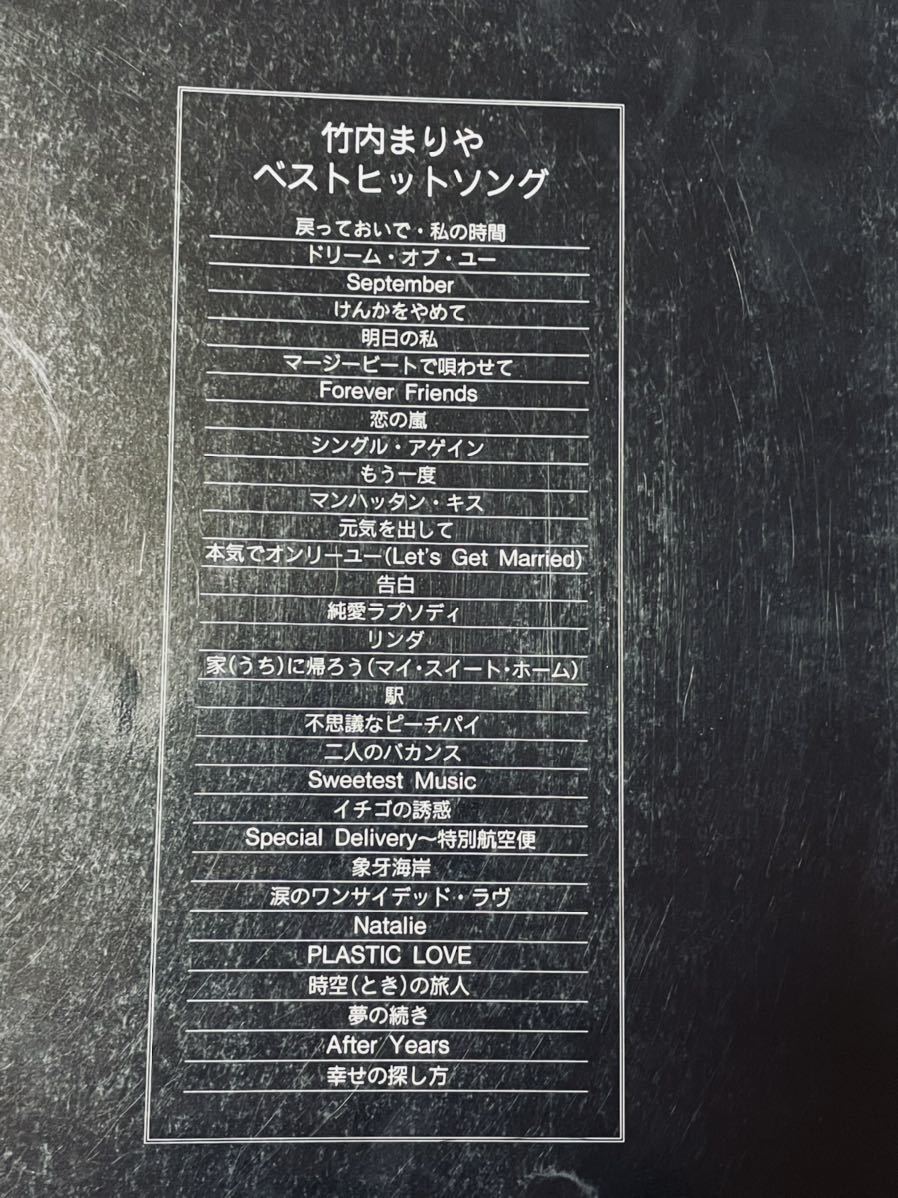 竹内まりや
ベストヒットソング
戻っておいで・私の時間
ドリーム・オブ・ユー
September
けんかをやめて
明日の私
マージービートで唄わせて
Forever Friends
恋の嵐
シングル・アゲイン
もう一度
マンハッタン・キス
元気を出して
本気でオンリーユー(Let's Get Married)
告白
純愛ラプソディ
リンダ
家(うち)に帰ろう(マイ・スイート・ホーム)
駅
不思議なピーチパイ
二人のバカンス
Sweetest Music
イチゴの誘惑
Special Delivery〜特別航空便
象牙海岸
涙のワンサイデッド・ラヴ
Natalie
PLASTIC LOVE
時空(とき)の旅人
夢の続き
After Years
幸せの探し方